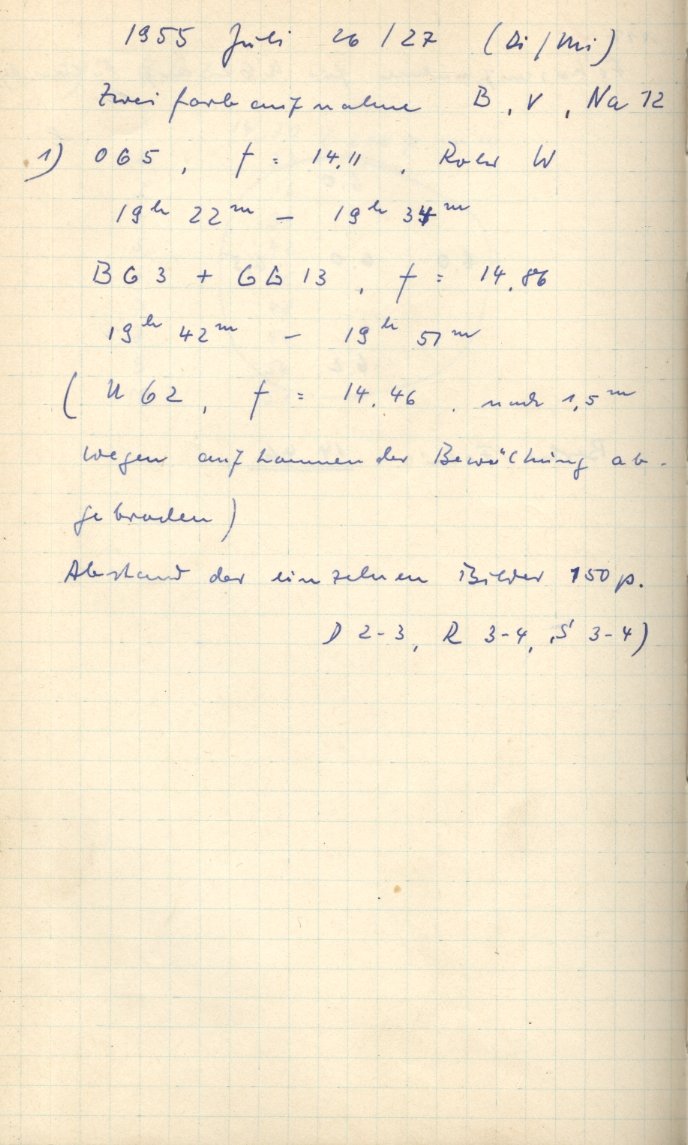 1955 Juli 26/27 (Di/Mi)
Zweifarbaufnahme B, V, Na 12
1) OG5, f = 14,11, Rohr W
19h 22m – 19h 34m
BG3 + GG13, f = 14.86
19h 42m – 19h 51m
(UG2, f = 14.46, nach 1,5m
wegen aufkommender Bewölkung ab-
gebrochen)
Abstand der einzelnen Bilder 150 p.
D 2-3, R 3-4, S 3-4)